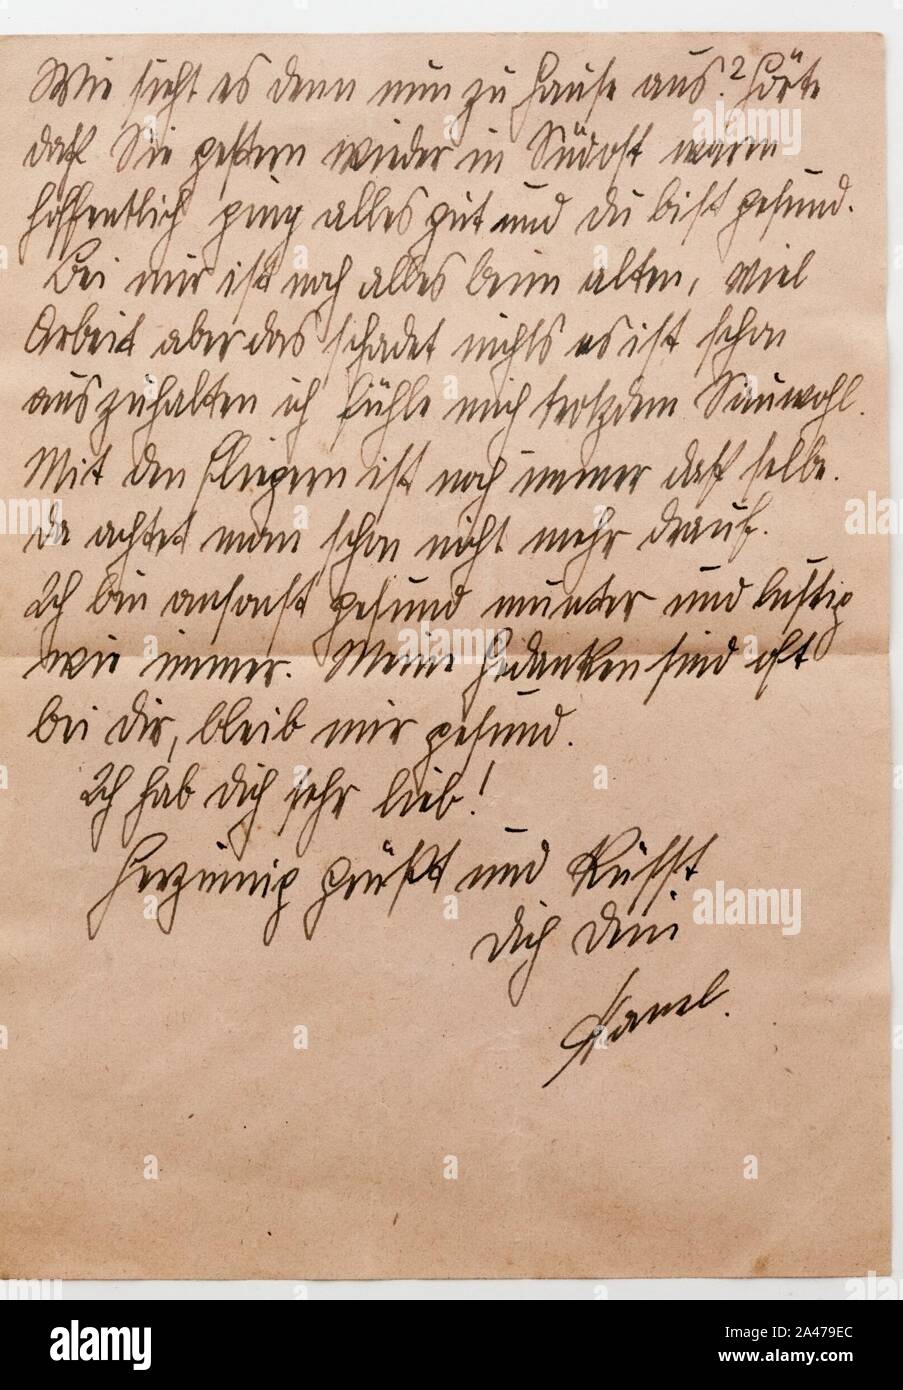 Wie sieht es denn nun zu Hause aus? Hörte
daß Sie gestern wieder in Südost waren
hoffentlich ging alles gut und du bist gesund.
Bei mir ist noch alles beim alten, viel
Arbeit aber das schadet nichts es ist schon
auszuhalten ich fühle mich trotzdem Sauwohl.
Mit den Fliegern ist noch immer daß selbe.
da achtet man schon nicht mehr drauf.
Ich bin ansonst gesund munter und lustig
wie immer. Meine Gedanken sind oft
bei dir, bleib mir gesund.
Ich hab dich sehr lieb!
Herzinnig grüßt und Küsst
dich dein
alamy
alamy
alamy
alamy
Image ID: 2A479EC
www.alamy.com